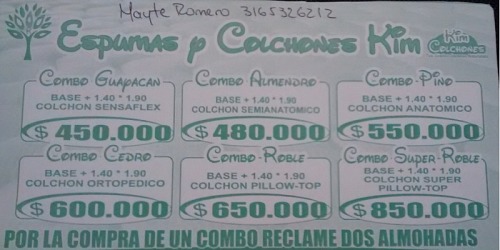 Mayte Romero 3165326212
Espumas y Colchones Kim
Kim
Colchones
Combo Guayacan
BASE + 1.40 * 1.90
COLCHON SENSAFLEX
$ 450.000
Combo Almendro
BASE + 1.40 * 1.90
COLCHON SEMIANATOMICO
$ 480.000
Combo-Pino
BASE + 1.40 * 1.90
COLCHON ANATOMICO
$ 550.000
Combo Cedro
BASE + 1.40 * 1.90
COLCHON ORTOPEDICO
$ 600.000
Combo-Roble
BASE + 1.40 * 1.90
COLCHON PILLOW-TOP
$ 650.000
Combo Super-Roble
BASE + 1.40 * 1.90
COLCHON SUPER
PILLOW-TOP
$ 850.000
POR LA COMPRA DE UN COMBO RECLAME DOS ALMOHADAS